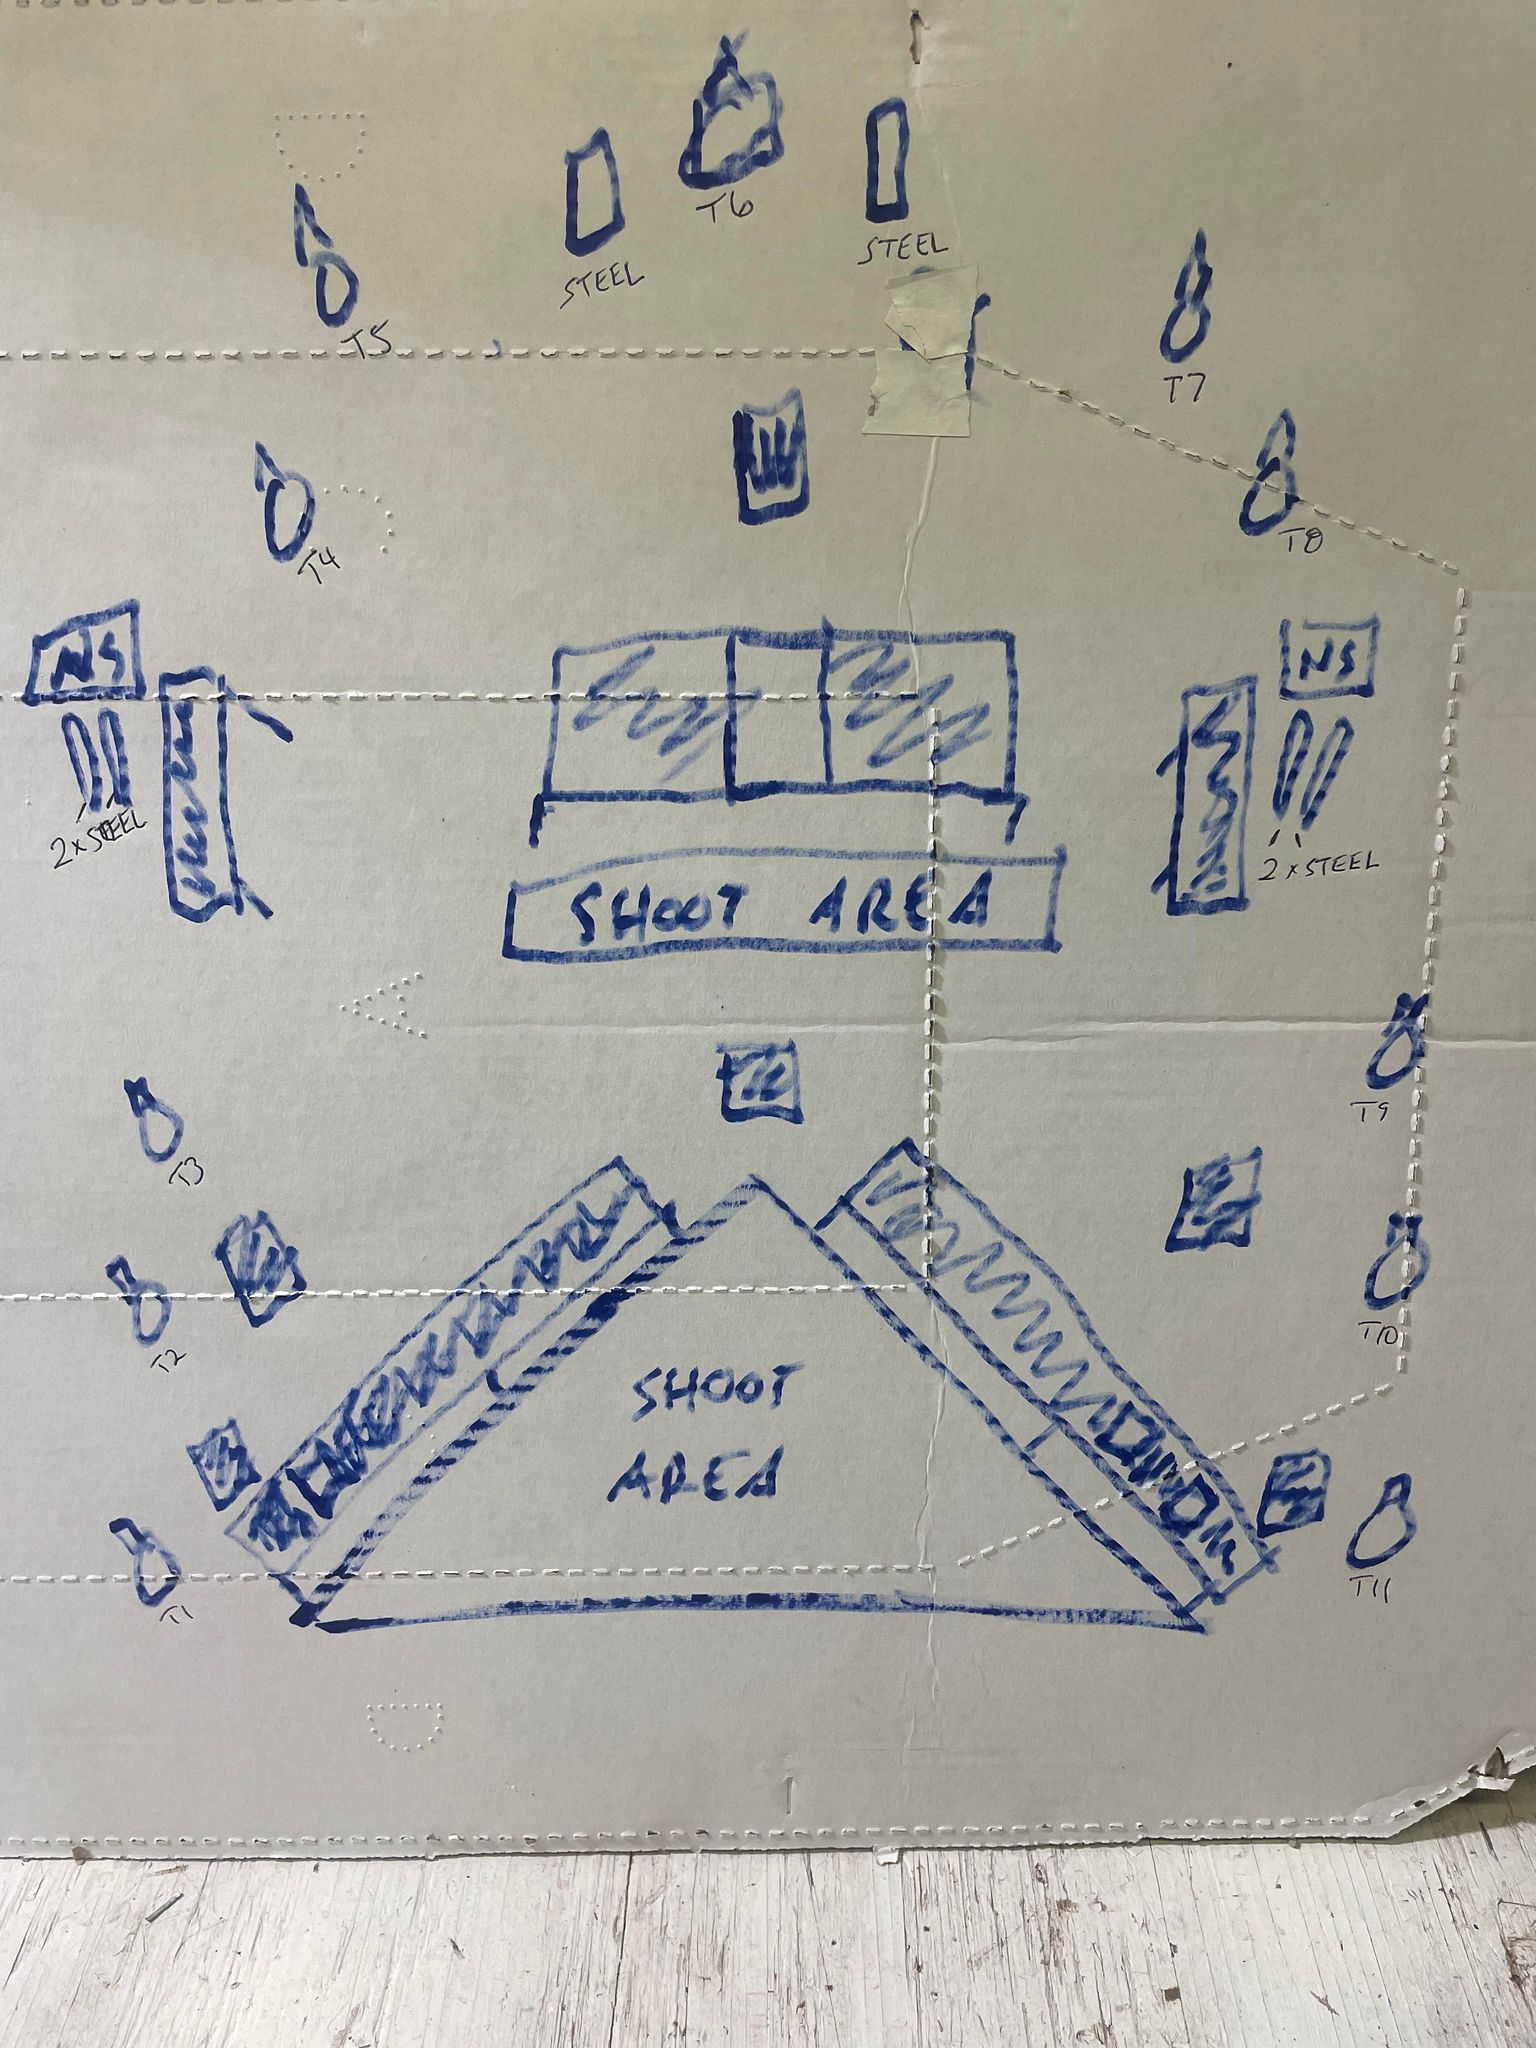 T6
STEEL
STEEL
T5
T7
T4
T8
NS
NS
2xSTEEL
2xSTEEL
SHOOT AREA
T3
T9
T2
T10
SHOOT
AREA
T1
T11